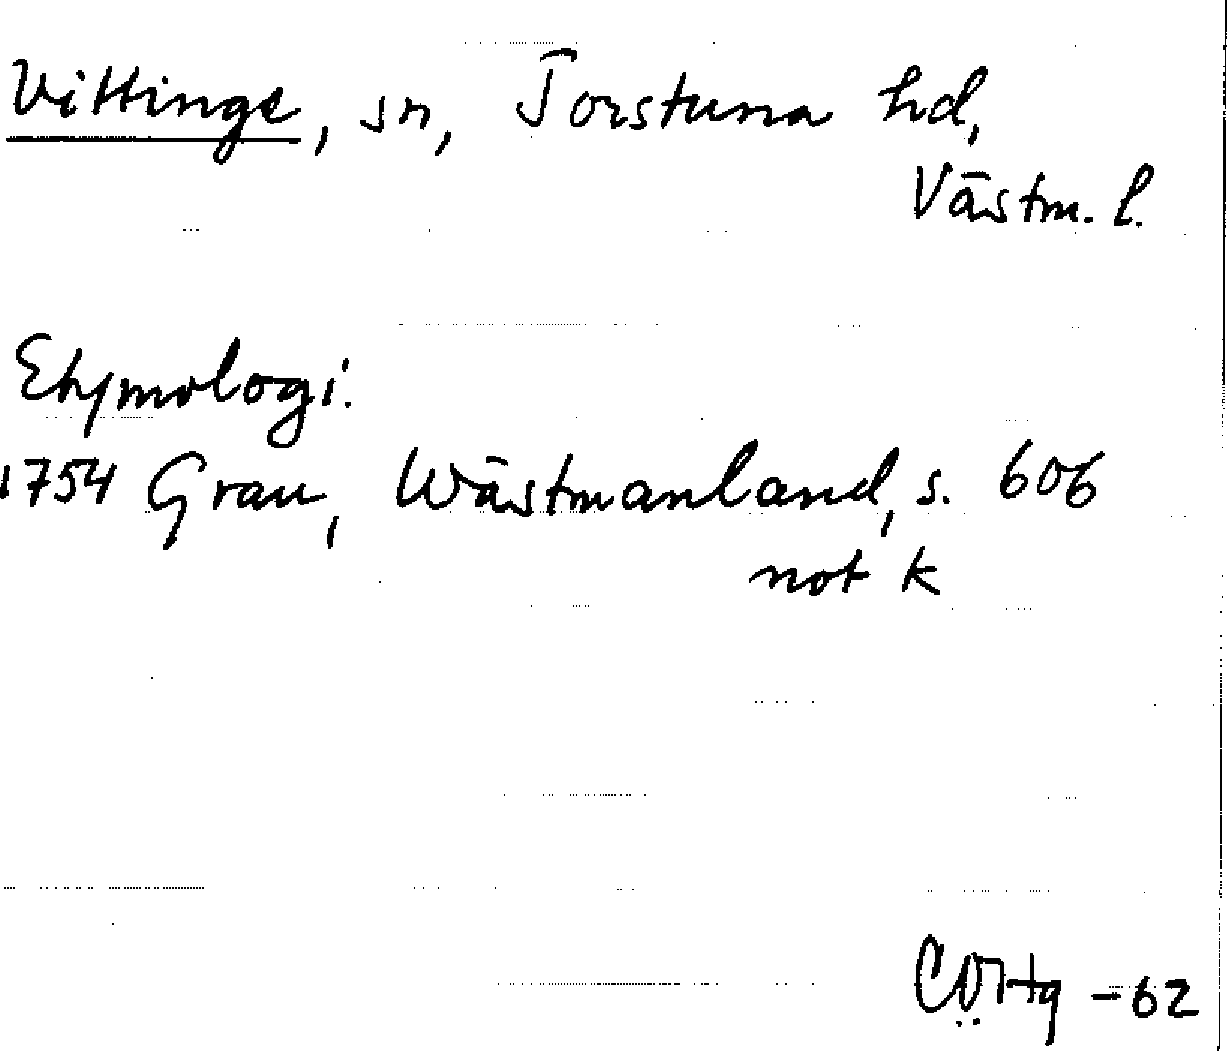 Vittinge, sn, Torstuna hd,
Västm. l.
Etymologi:
1754 Grau, Wästmanland, s. 606
not k
-62